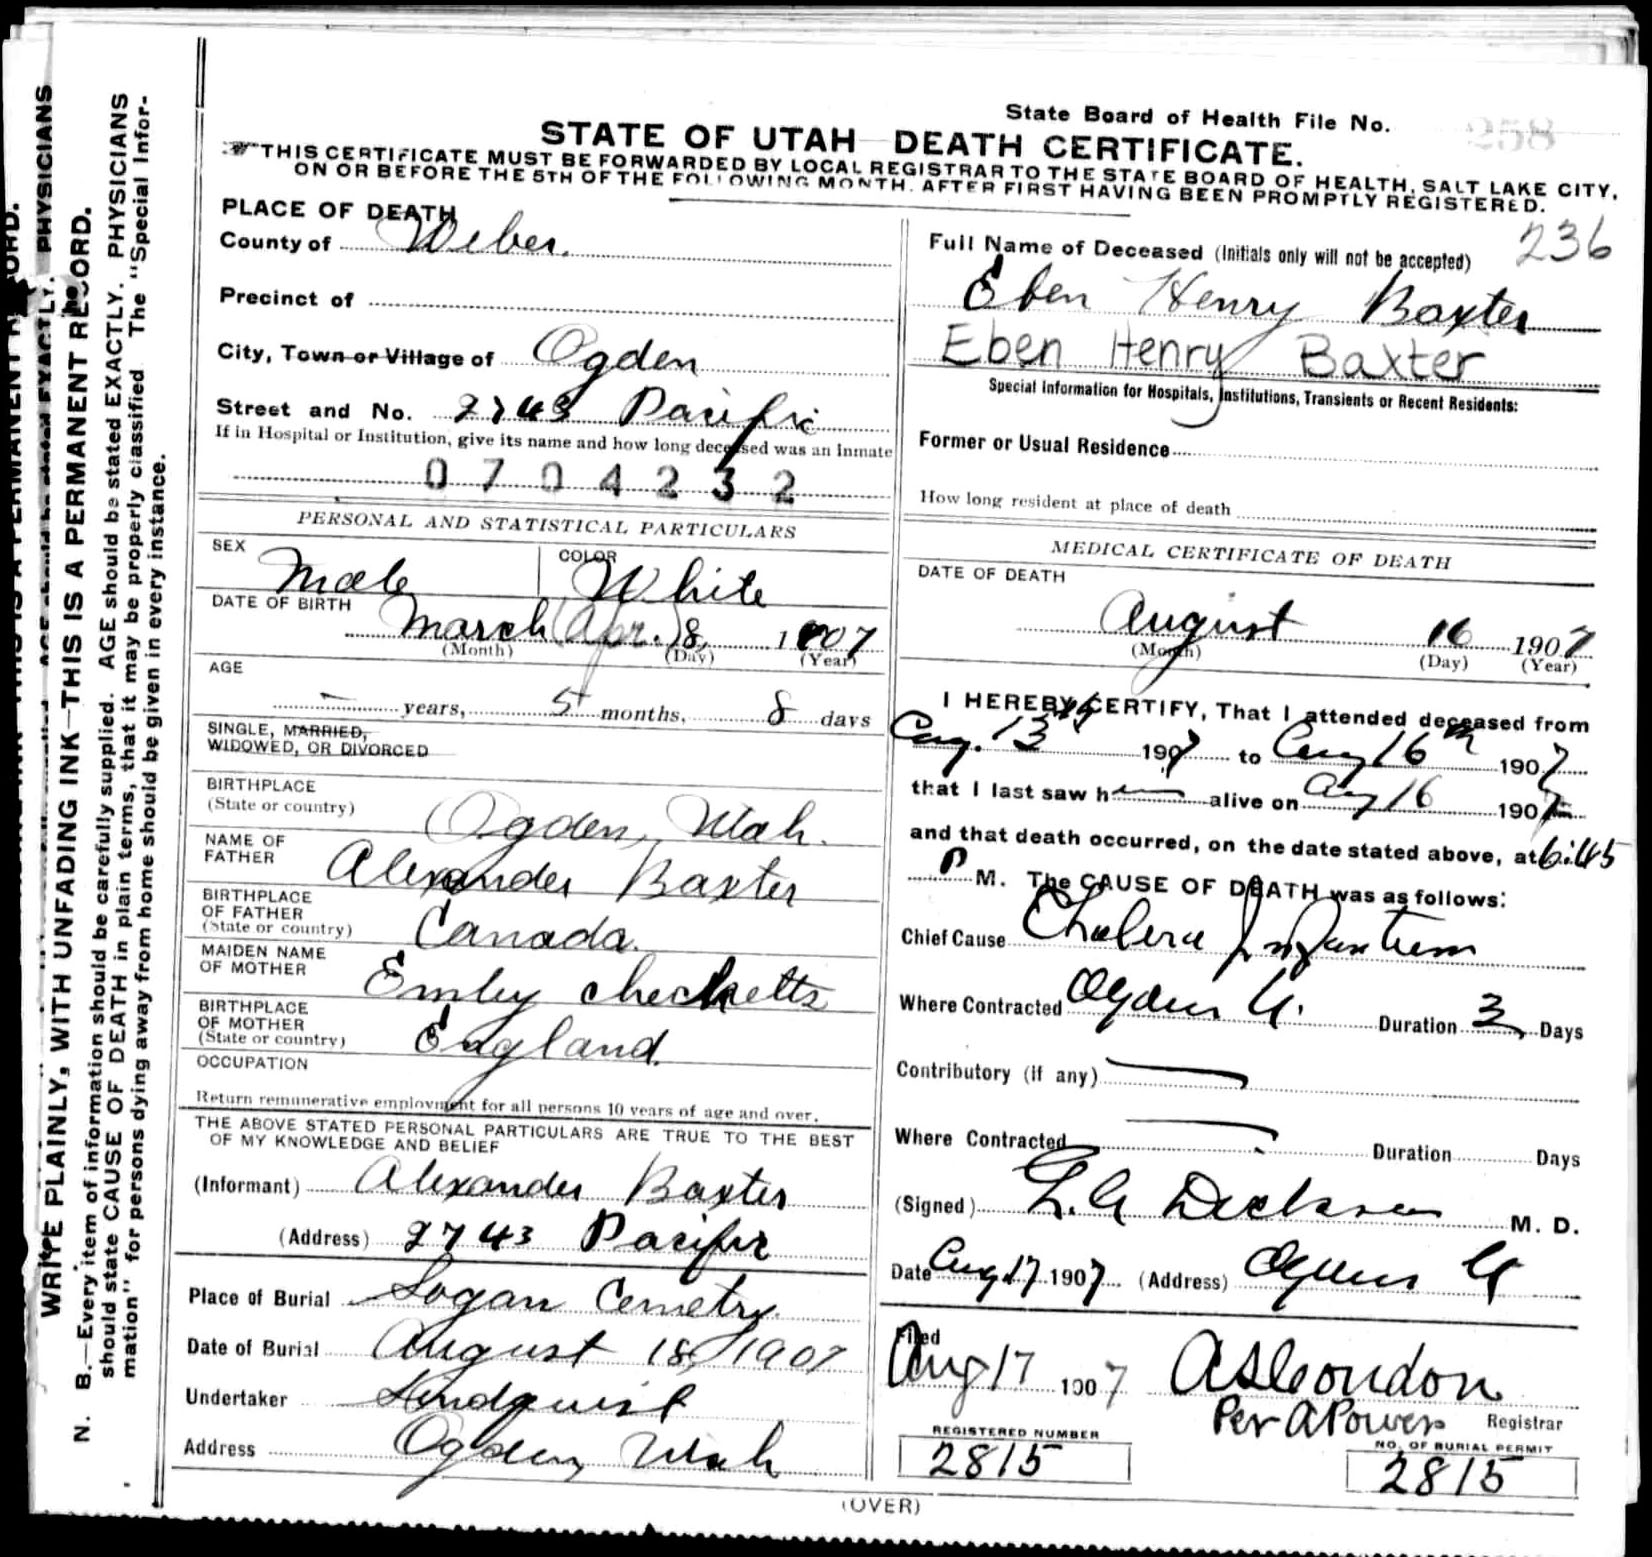 State Board of Health File No. 258
STATE OF UTAH DEATH CERTIFICATE.
THIS CERTIFICATE MUST BE FORWARDED BY LOCAL REGISTRAR TO THE STATE BOARD OF HEALTH, SALT LAKE CITY,
ON OR BEFORE THE 5TH OF THE FOLLOWING MONTH. AFTER FIRST HAVING BEEN PROMPTLY REGISTERED.
PLACE OF DEATH
County of Weber.
Precinct of
City, Town or Village of Ogden
Street and No. 2743 Pacific
If in Hospital or Institution, give its name and how long deceased was an inmate
0704232
PERSONAL AND STATISTICAL PARTICULARS
SEX Male COLOR White
DATE OF BIRTH March (Apr.) 8, 1907
(Month) (Day) (Year)
AGE
years, 5 months, 8 days
SINGLE, MARRIED,
WIDOWED, OR DIVORCED
BIRTHPLACE
(State or country) Ogden, Utah.
NAME OF
FATHER Alexander Baxter
BIRTHPLACE
OF FATHER
(State or country) Canada.
MAIDEN NAME
OF MOTHER Emley Checketts
BIRTHPLACE
OF MOTHER
(State or country) England.
OCCUPATION
Return remunerative employment for all persons 10 years of age and over.
THE ABOVE STATED PERSONAL PARTICULARS ARE TRUE TO THE BEST
OF MY KNOWLEDGE AND BELIEF
(Informant) Alexander Baxter
(Address) 2743 Pacific
Place of Burial Logan Cemetry.
Date of Burial August 18, 1907
Undertaker Lindquist
Address Ogden, Utah
236
Full Name of Deceased (Initials only will not be accepted)
Eben Henry Baxter
Eben Henry Baxter
Special Information for Hospitals, Institutions, Transients or Recent Residents:
Former or Usual Residence
How long resident at place of death
MEDICAL CERTIFICATE OF DEATH
DATE OF DEATH
August 16 1907
(Month) (Day) (Year)
I HEREBY CERTIFY, That I attended deceased from
Aug. 13th 1907 to Aug 16th 1907
that I last saw him alive on Aug 16 1907
and that death occurred, on the date stated above, at 6:45
P M. The CAUSE OF DEATH was as follows:
Chief Cause Cholera Infantum
Where Contracted Ogden U. Duration 3 Days
Contributory (if any)
Where Contracted Duration Days
(Signed) Dickson M. D.
Date Aug 17 1907 (Address) Ogden U
Filed
Aug 17 1907 A S Condon
Per A Powers Registrar
REGISTERED NUMBER
2815
NO. OF BURIAL PERMIT
2815
(OVER)
WRITE PLAINLY, WITH UNFADING INK—THIS IS A PERMANENT RECORD.
N. B.—Every item of information should be carefully supplied. AGE should be stated EXACTLY. PHYSICIANS
should state CAUSE OF DEATH in plain terms, that it may be properly classified. The "Special Infor-
mation" for persons dying away from home should be given in every instance.